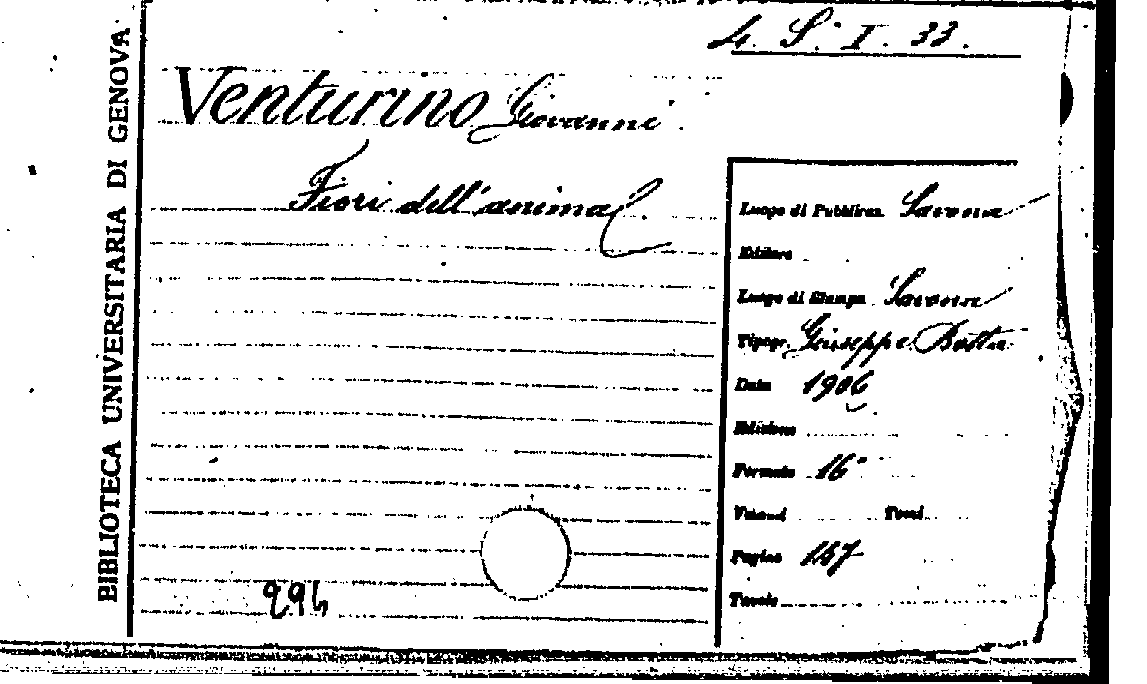 BIBLIOTECA UNIVERSITARIA DI GENOVA
4. S. I. 33.
Venturino Giovanni.
Fiori dell'anima.
Luogo di Pubblicaz. Savona
Editore
Luogo di Stampa Savona
Tipogr. Giuseppe Botta
Data 1906
Edizione
Formato 16°
Volumi Tomi
Pagine 157
Tavole